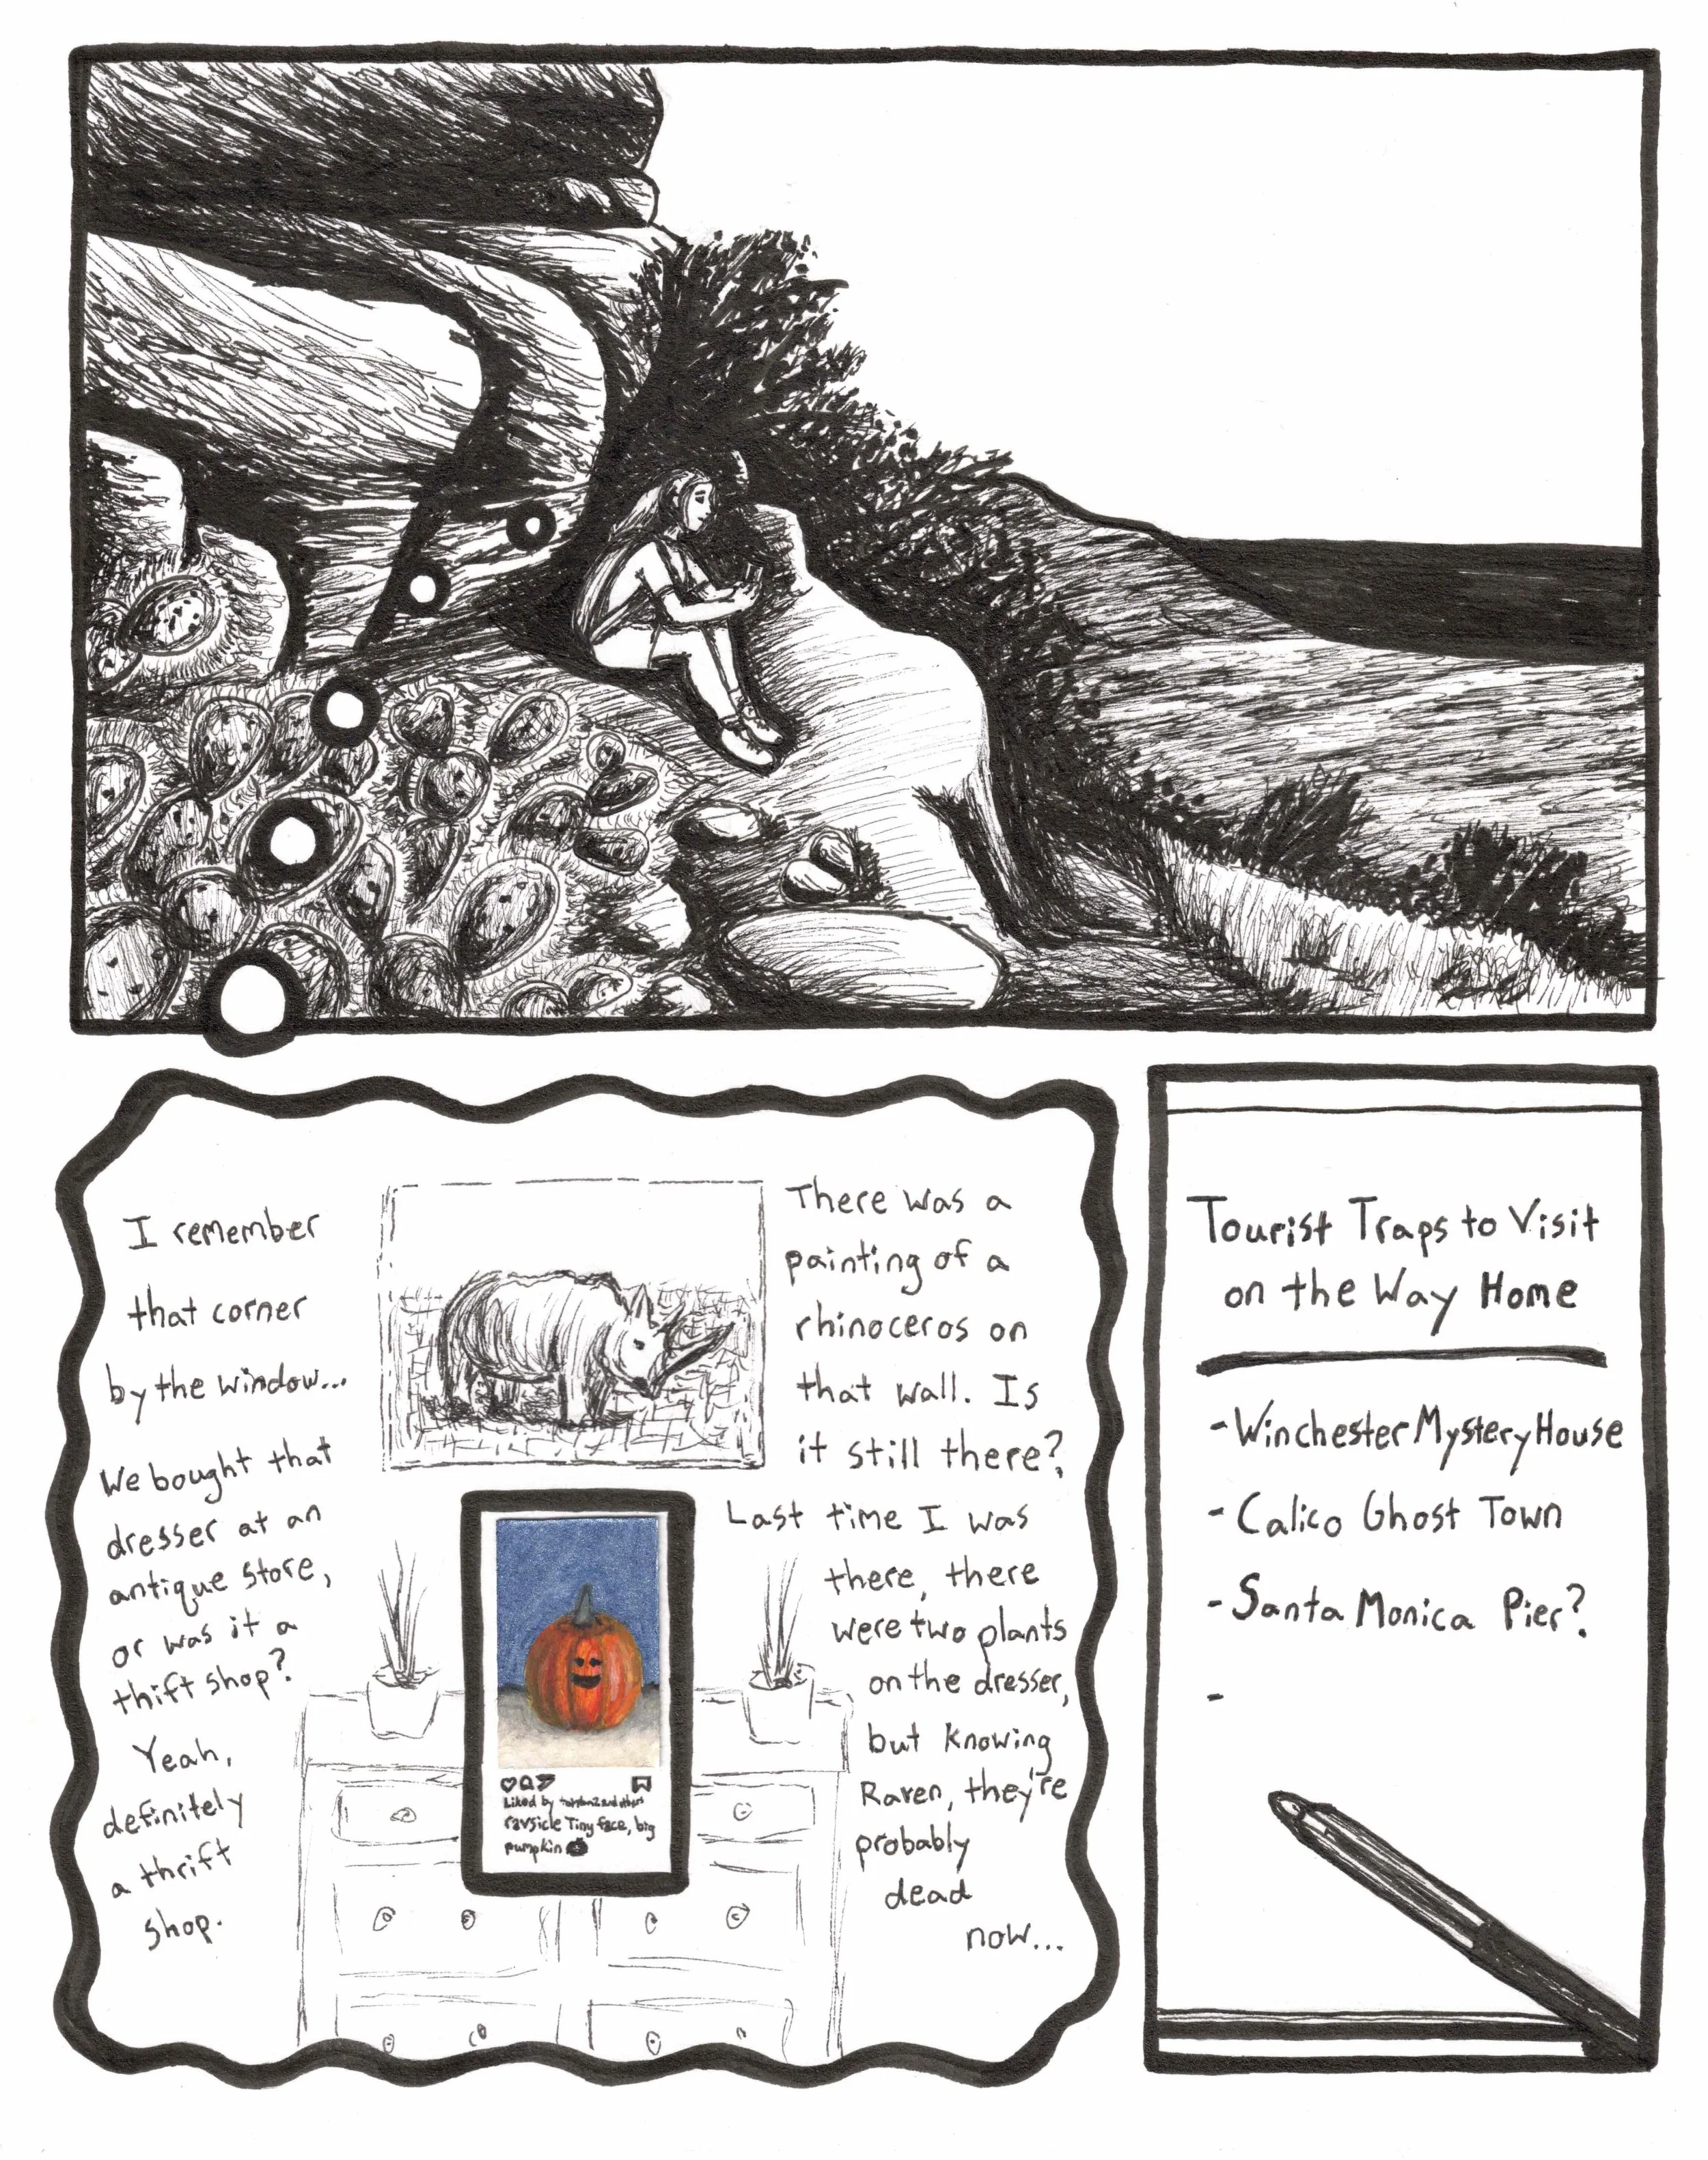 I remember
that corner
by the window...
We bought that
dresser at an
antique store,
or was it a
thift shop?
Yeah,
definitely
a thrift
shop.
There was a
painting of a
rhinoceros on
that wall. Is
it still there?
Last time I was
there, there
were two plants
on the dresser,
but knowing
Raven, they're
probably
dead
now...
Liked by and others
ravsicle Tiny face, big
pumpkin
Tourist Traps to Visit
on the Way Home
-Winchester Mystery House
-Calico Ghost Town
-Santa Monica Pier?
-